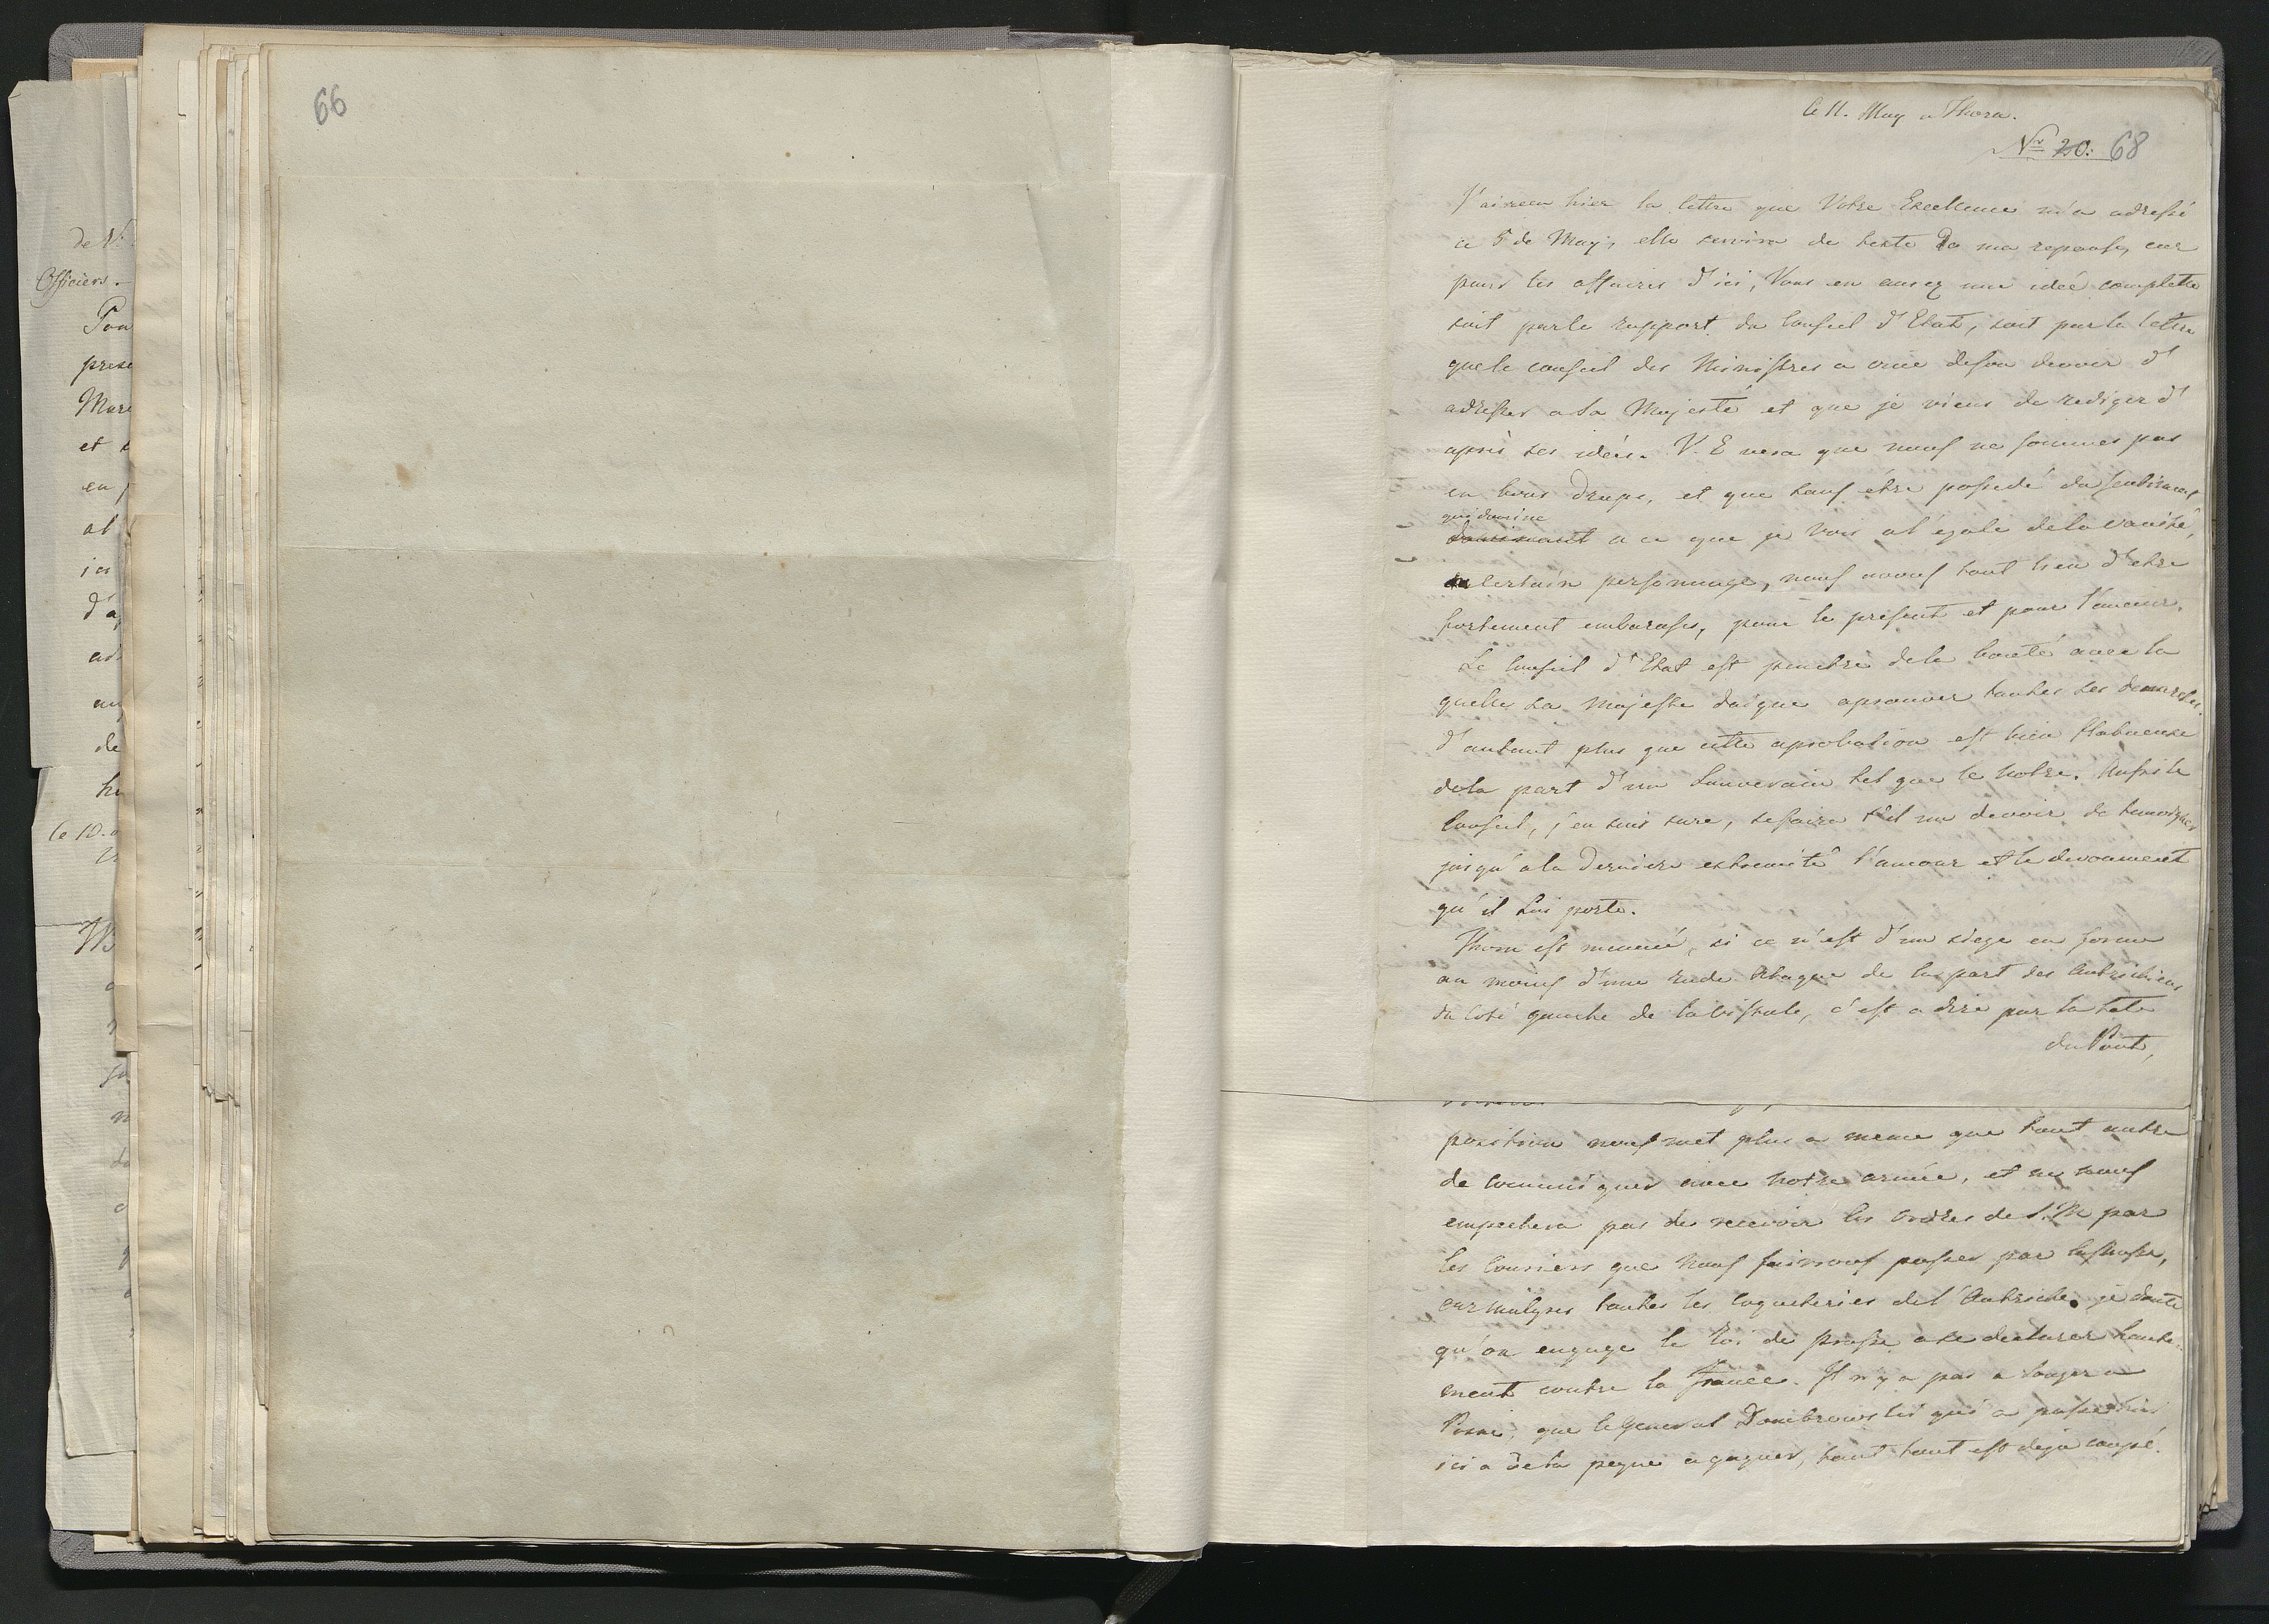 66
de
Officiers.
Pou
prese
Mare
et
en
al
ici
d'a
ad
au
de
le 10.
le 11. May a Thorn.
Nr 20: 68
J'ai recu hier la lettre que Votre Excellence m'a adressé
ce 5 de May, elle servira de texte da ma reponse, car
pour les affaires d'ici, Vous en aurez une idée complette
soit par le rapport du Conseil d'Etat, soit par la lettre
que le conseil des Ministres a crue de son devoir d'
adresser a Sa Majesté et que je viens de rediger d'
après ses idées. V. E verra que nous ne sommes pas
en bons draps, et que sans être possedé du sentiment
qui domine
dominant a ce que je vois al'egale dela vanité,
certain personnage, nous avons tout lieu d'etre
fortement embarassés, pour le present et pour l'avenir.
Le Conseil d'Etat est penetré dela bonté avec la
quelle Sa Majesté daigne aprouver toutes ses demarches
d'autant plus que cette aprobation est bien flatueuse
dela part d'un Souverain tel que le notre. Aussi le
Conseil, j'en suis sure, se faira t'il un devoir de temoigner
jusqu'a la derniere extremité l'amour et le devouement
qu'il Lui porte.
Thorn est menacé, si ce n'est d'un siege en forme
au moins d'une rude attaque de la part des Autrichiens
du Coté gauche de la Vistule, c'est a dire par la tete
du Pont,
position nous met plus a meme que tout autre
de communiquer avec notre armée, et ne nous
empechera pas de recevoir les ordres de S. M par
les Couriers que nous fairons passer par la Prusse,
car malgres toutes les coqueteries del'Autriche. je doute
qu'on engage le Roi de Prusse a se declarer haute-
ment contre la France. Il n'y a pas a songer a
Posne, que le General Dombrowski qui a passé hier
ici a dela peyne a gagner, tant tout est deja coupé.